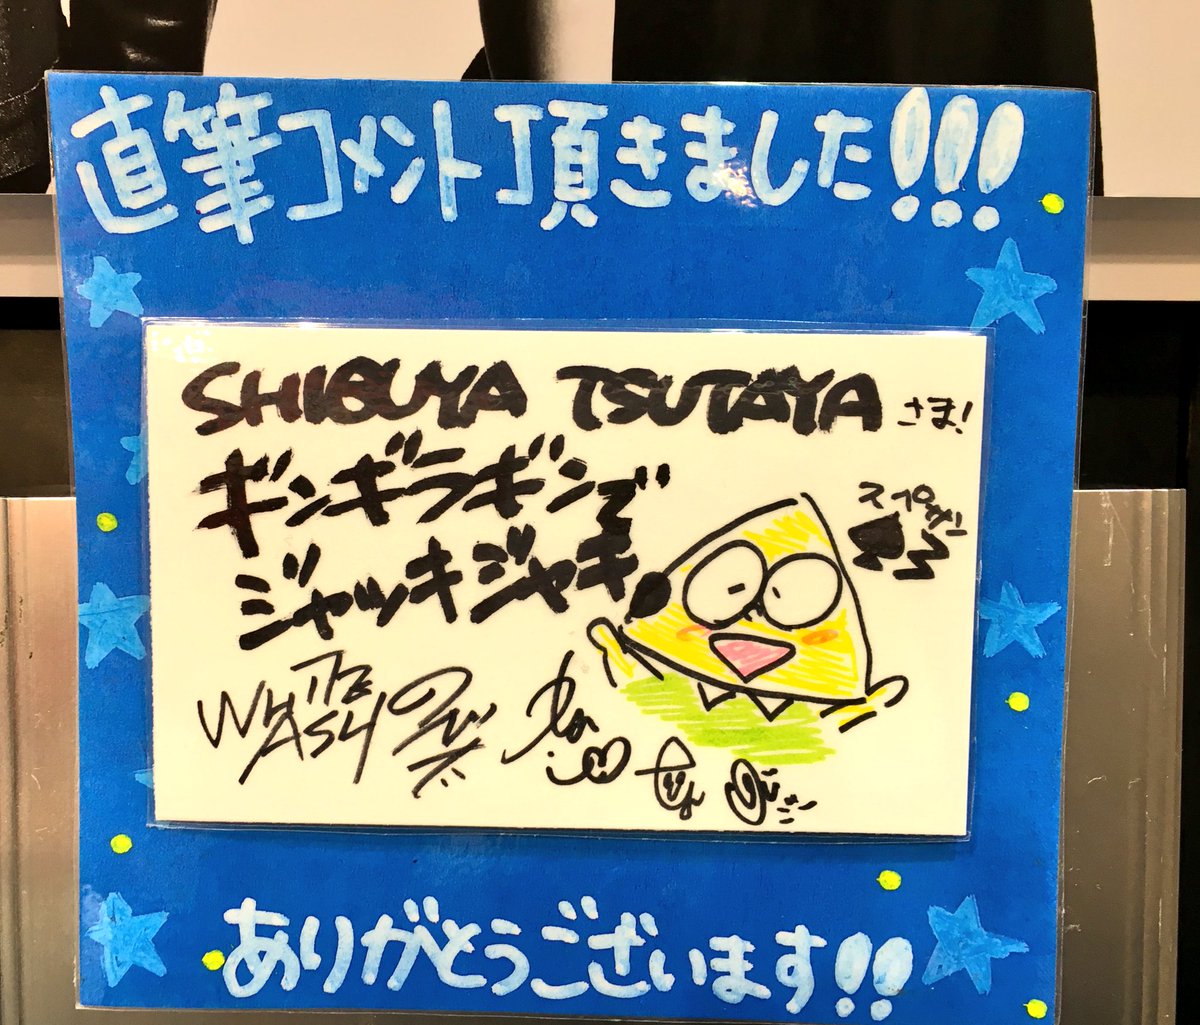 直筆コメント頂きました!!!
SHIBUYA TSUTAYA さま!
ギンギラギンで
ジャッキジャキ
WHITE
WASH
ありがとうございます!!